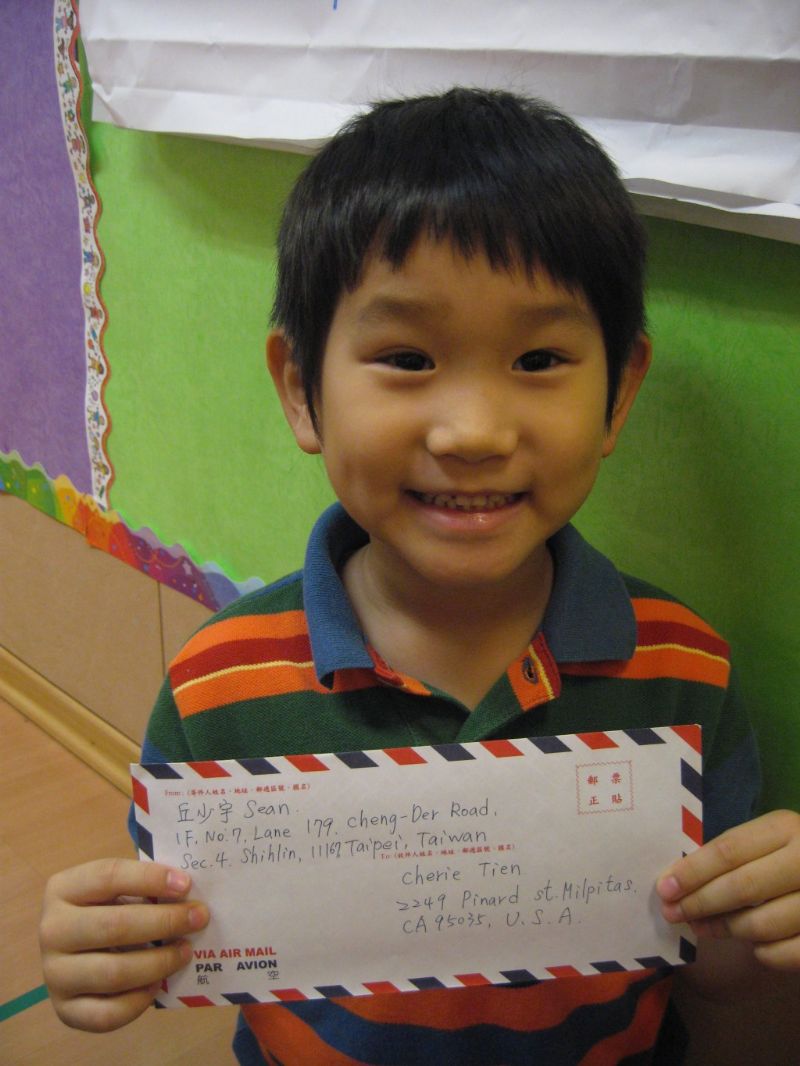 From: (寄件人姓名、地址、郵遞區號、國名)
丘少宇 Sean.
1F, No.7, Lane 179. Cheng-Der Road,
Sec.4. Shihlin, 11167 Taipei, Taiwan
郵 票
正 貼
To: (收件人姓名、地址、郵遞區號、國名)
Cherie Tien
2249 Pinard st. Milpitas.
CA 95035, U.S.A.
VIA AIR MAIL
PAR AVION
航 空